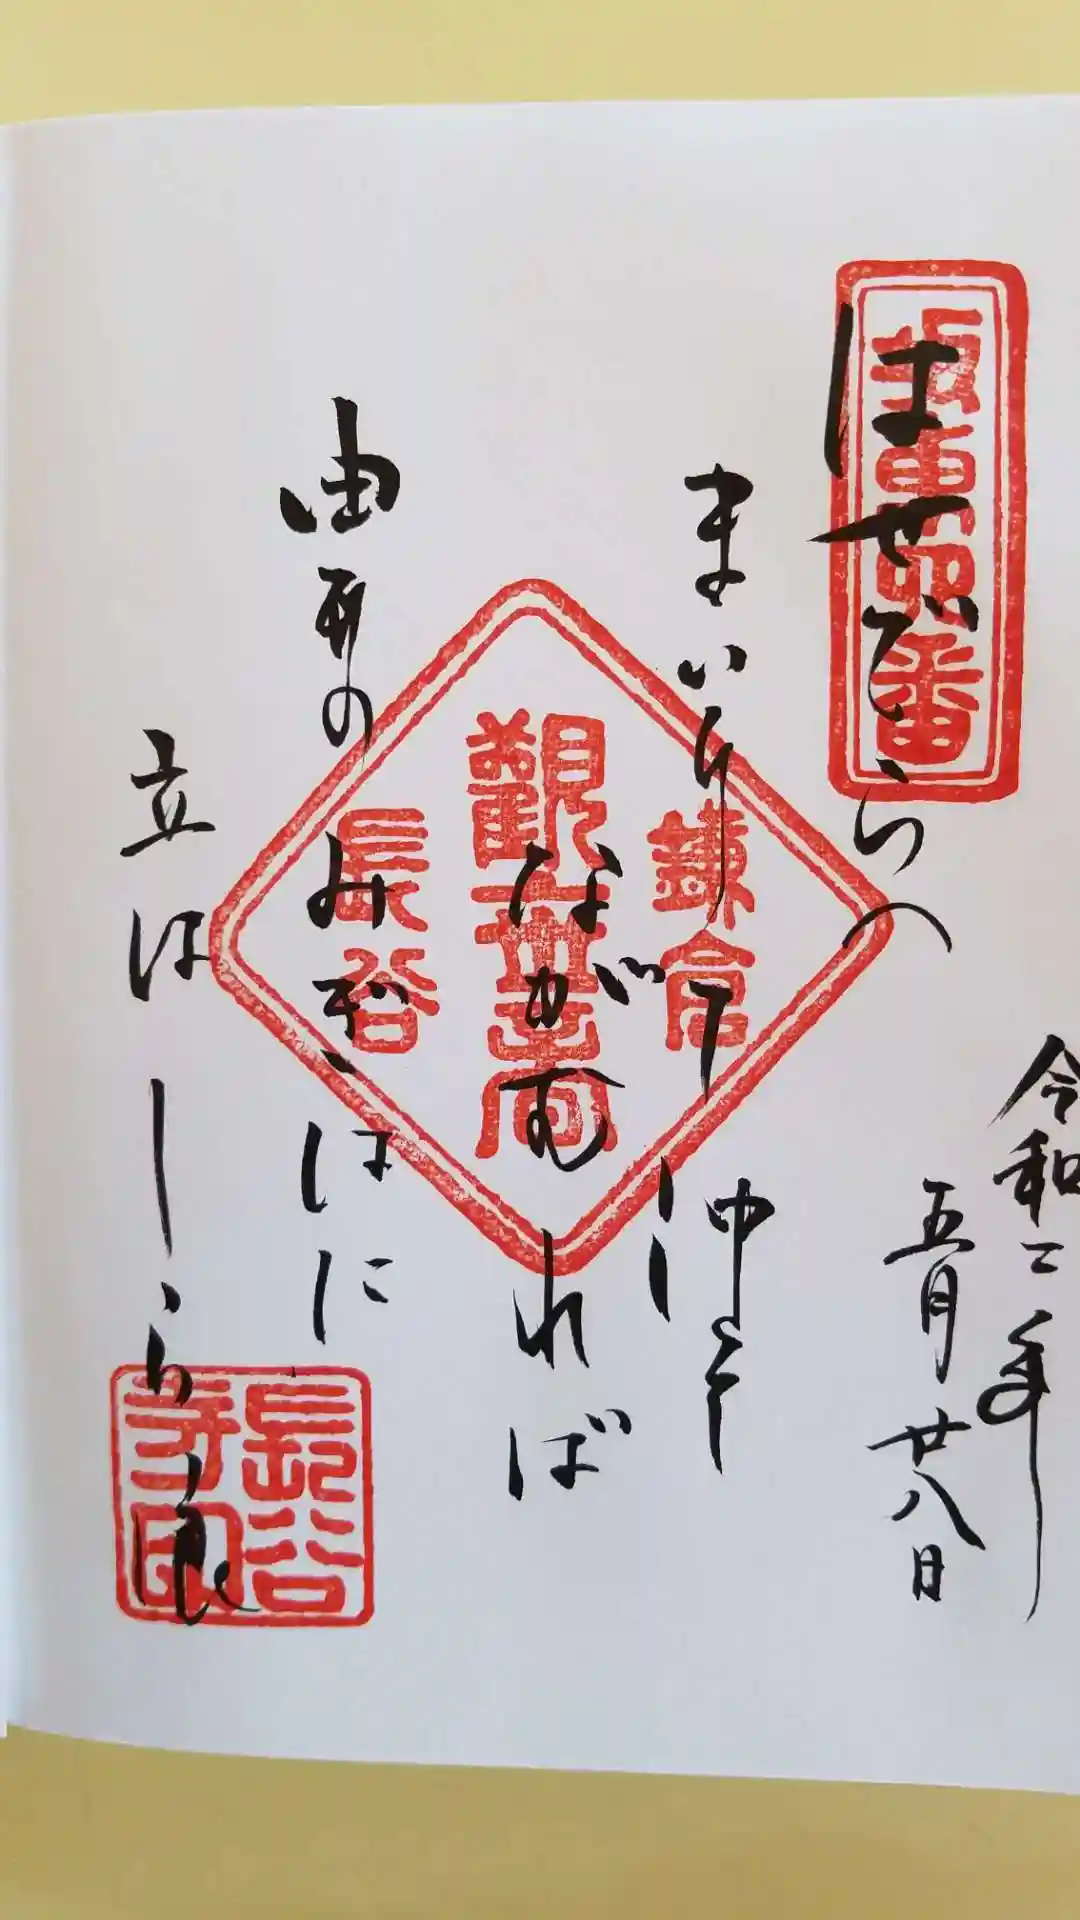 令和二年
五月廿八日
坂東四番
はせでらへ
まいりて沖を
ながむれば
由井のみぎはに
立はしら浪
鎌倉
觀世音
長谷
長谷寺印